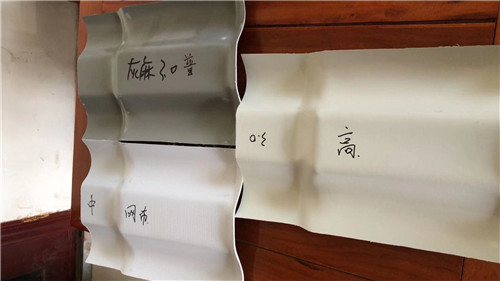 灰麻3.0普
中 网布
3.0 高